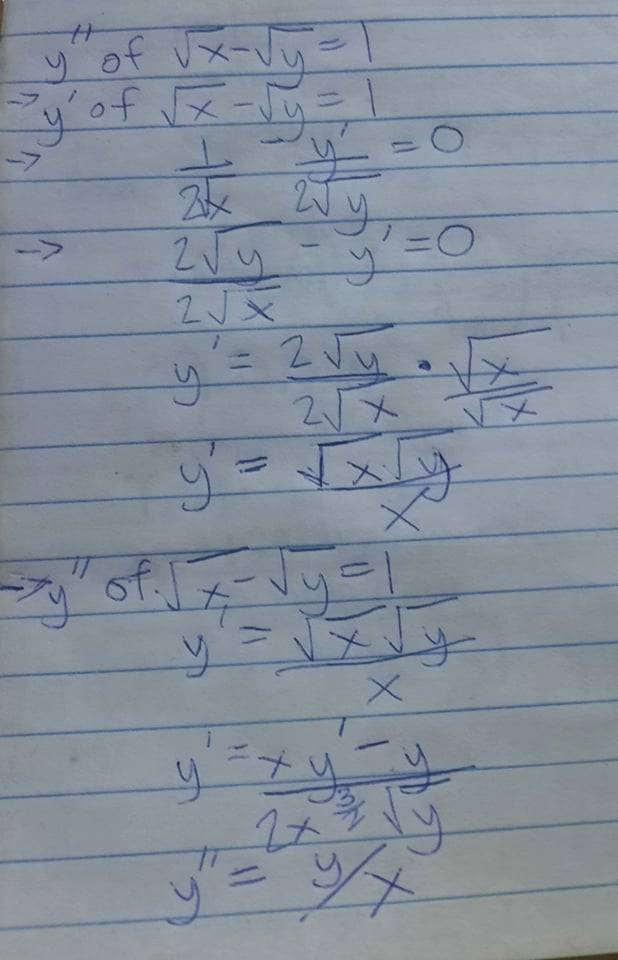 y'' of √x-√y=1
→ y' of √x-√y=1
→ 1/(2√x) - y'/(2√y) = 0
→ (2√y)/(2√x) - y' = 0
y' = (2√y)/(2√x) · √x/√x
y' = (√x√y)/x
→ y'' of √x-√y=1
y' = (√x√y)/x
y' = (xy' - y)/(2x^(3/2)√y)
y'' = y/x